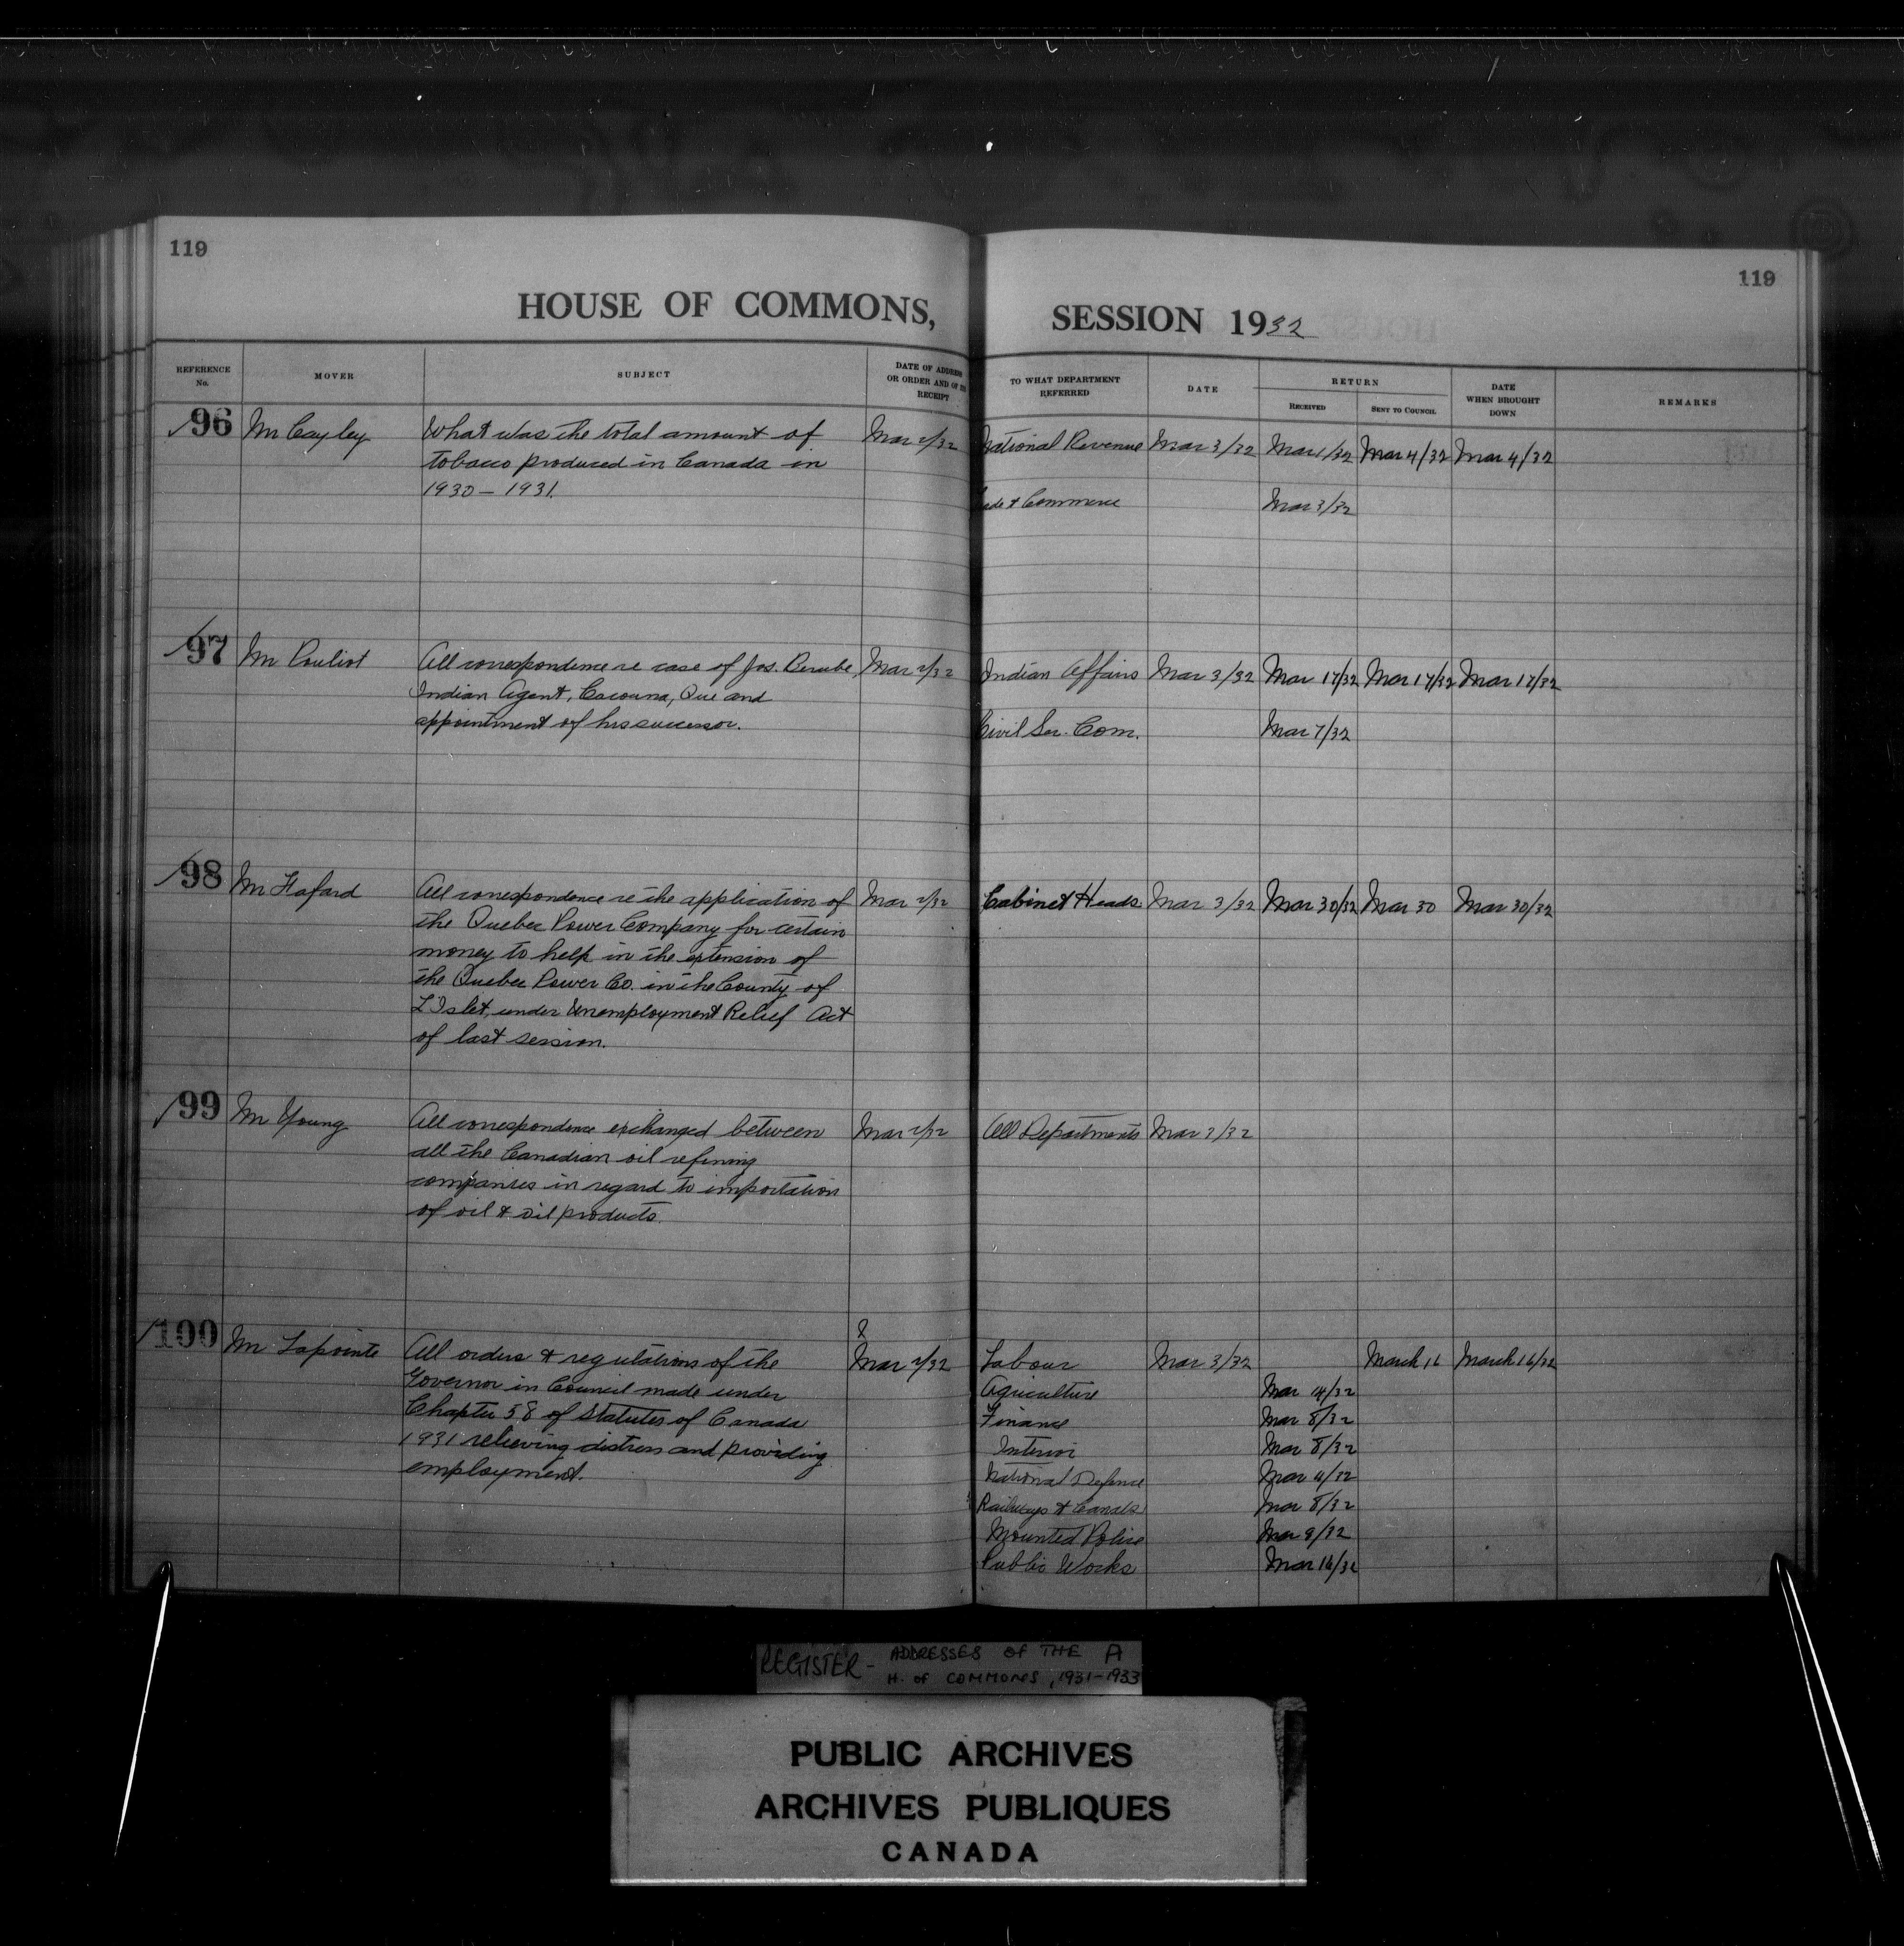 119
119
HOUSE OF COMMONS,
SESSION 1932
REFERENCE No.
MOVER
SUBJECT
DATE OF ADDRESS OR ORDER AND OF ITS RECEIPT
TO WHAT DEPARTMENT REFERRED
DATE
RETURN
RECEIVED
SENT TO COUNCIL
DATE WHEN BROUGHT DOWN
REMARKS
96 Mr Cayley What was the total amount of Mar 2/32 National Revenue Mar 3/32 Mar 1/32 Mar 4/32 Mar 4/32
tobacco produced in Canada in
1930 - 1931. ade & Commerce Mar 3/32
97 Mr Pouliot All correspondence re case of Jos. Berube, Mar 2/32 Indian Affairs Mar 3/32 Mar 17/32 Mar 17/32 Mar 17/32
Indian Agent, Cacouna, Que and
appointment of his successor. Civil Ser. Com. Mar 7/32
98 Mr Fafard All correspondence re the application of Mar 2/32 Cabinet Heads Mar 3/32 Mar 30/32 Mar 30 Mar 30/32
the Quebec Power Company for certain
money to help in the extension of
the Quebec Power Co. in the County of
L'Islet, under Unemployment Relief Act
of last session.
99 Mr Young All correspondence exchanged between Mar 2/32 All Departments Mar 3/32
all the Canadian oil refining
companies in regard to importation
of oil & oil products.
100 Mr Lapointe All orders & regulations of the Mar 2/32 Labour Mar 3/32 March 16 March 16/32
Governor in Council made under Agriculture Mar 14/32
Chapter 58 of Statutes of Canada Finance Mar 8/32
1931 relieving distress and providing Interior Mar 8/32
employment. National Defence Mar 11/32
Railways & Canals Mar 8/32
Mounted Police Mar 9/32
Public Works Mar 16/32
REGISTER - ADDRESSES OF THE A
H. OF COMMONS, 1931-1933
PUBLIC ARCHIVES
ARCHIVES PUBLIQUES
CANADA